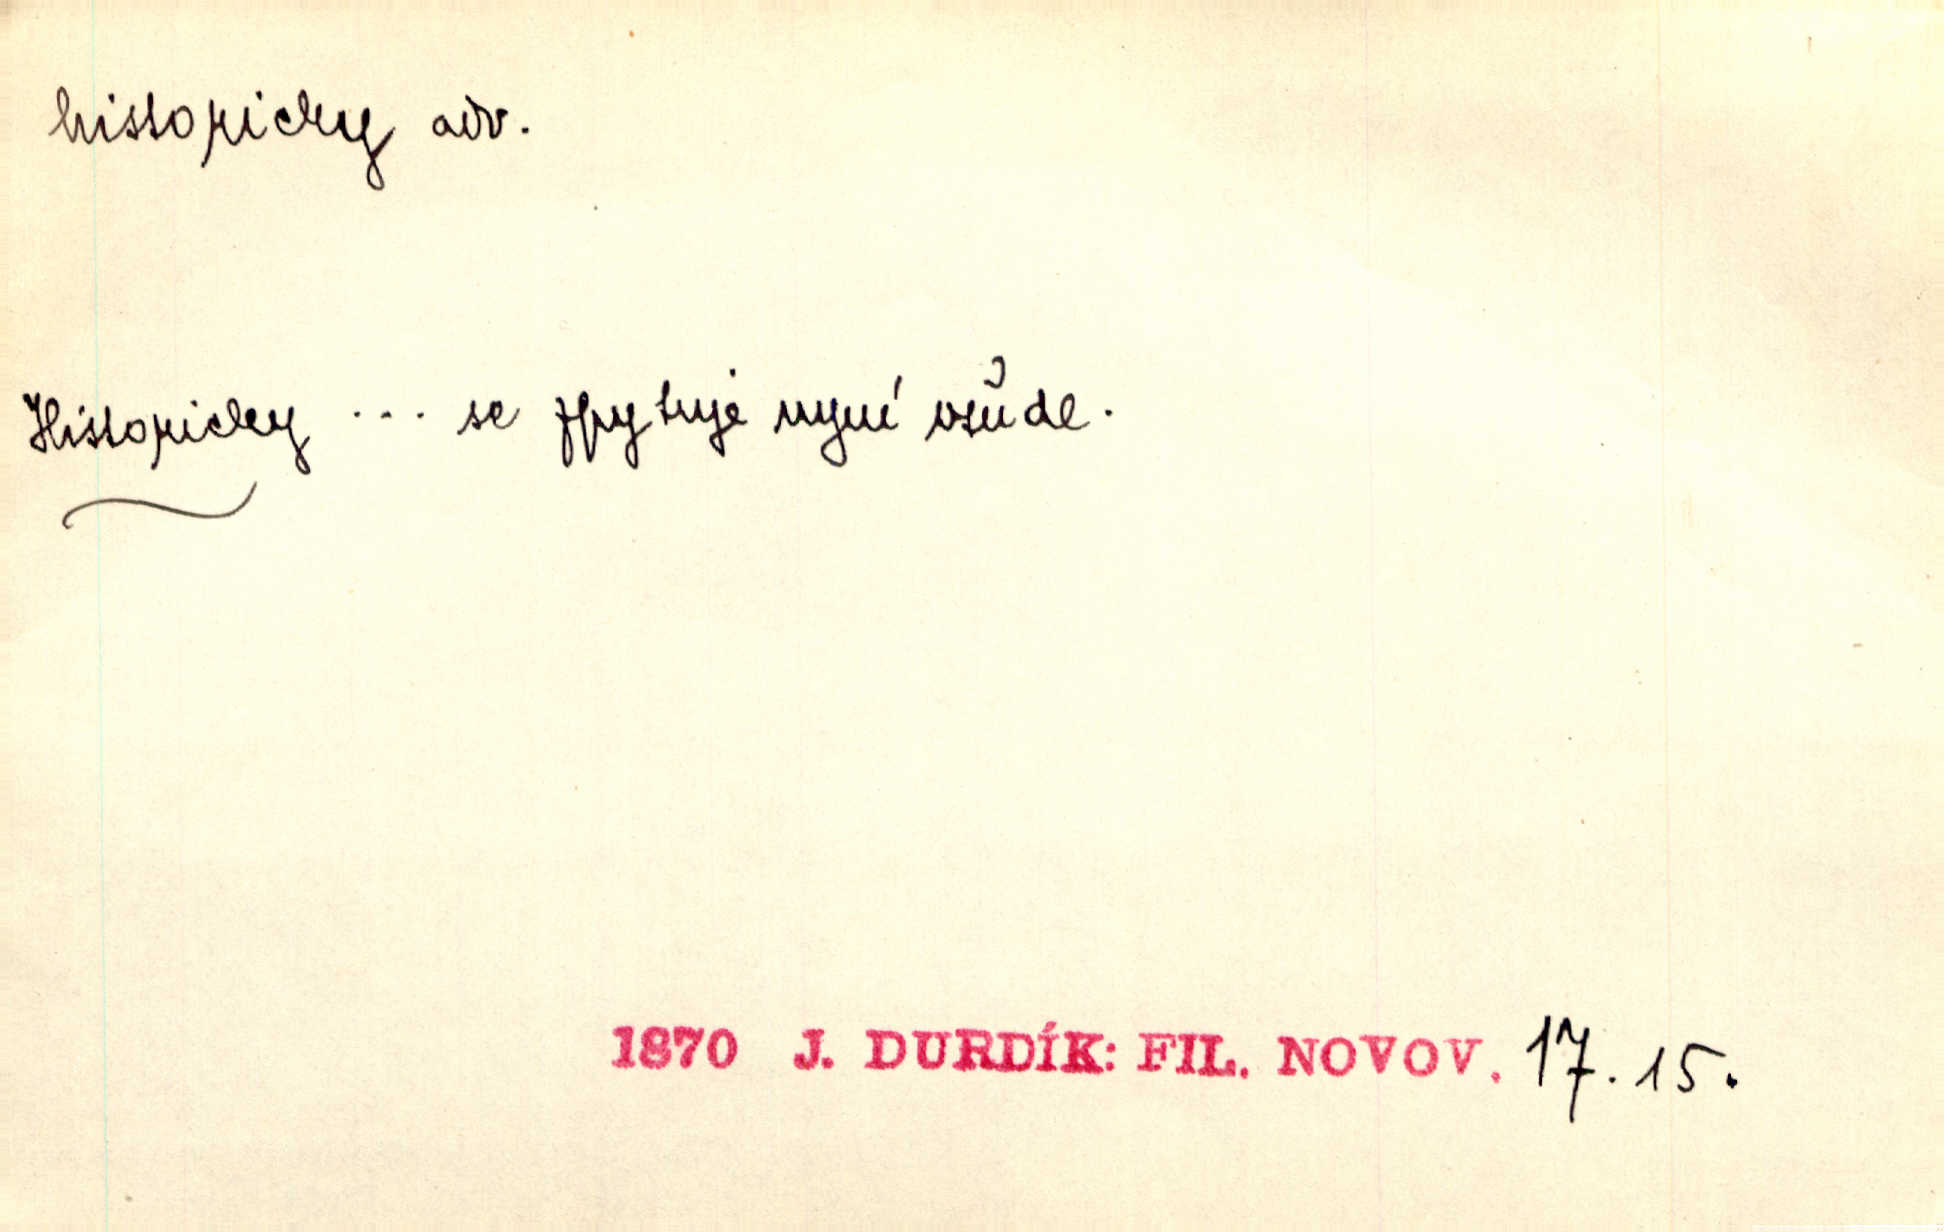 historicky adv.
Historicky ... se zpytuje nyní všude.
1870 J. DURDÍK: FIL. NOVOV. 17. 15.